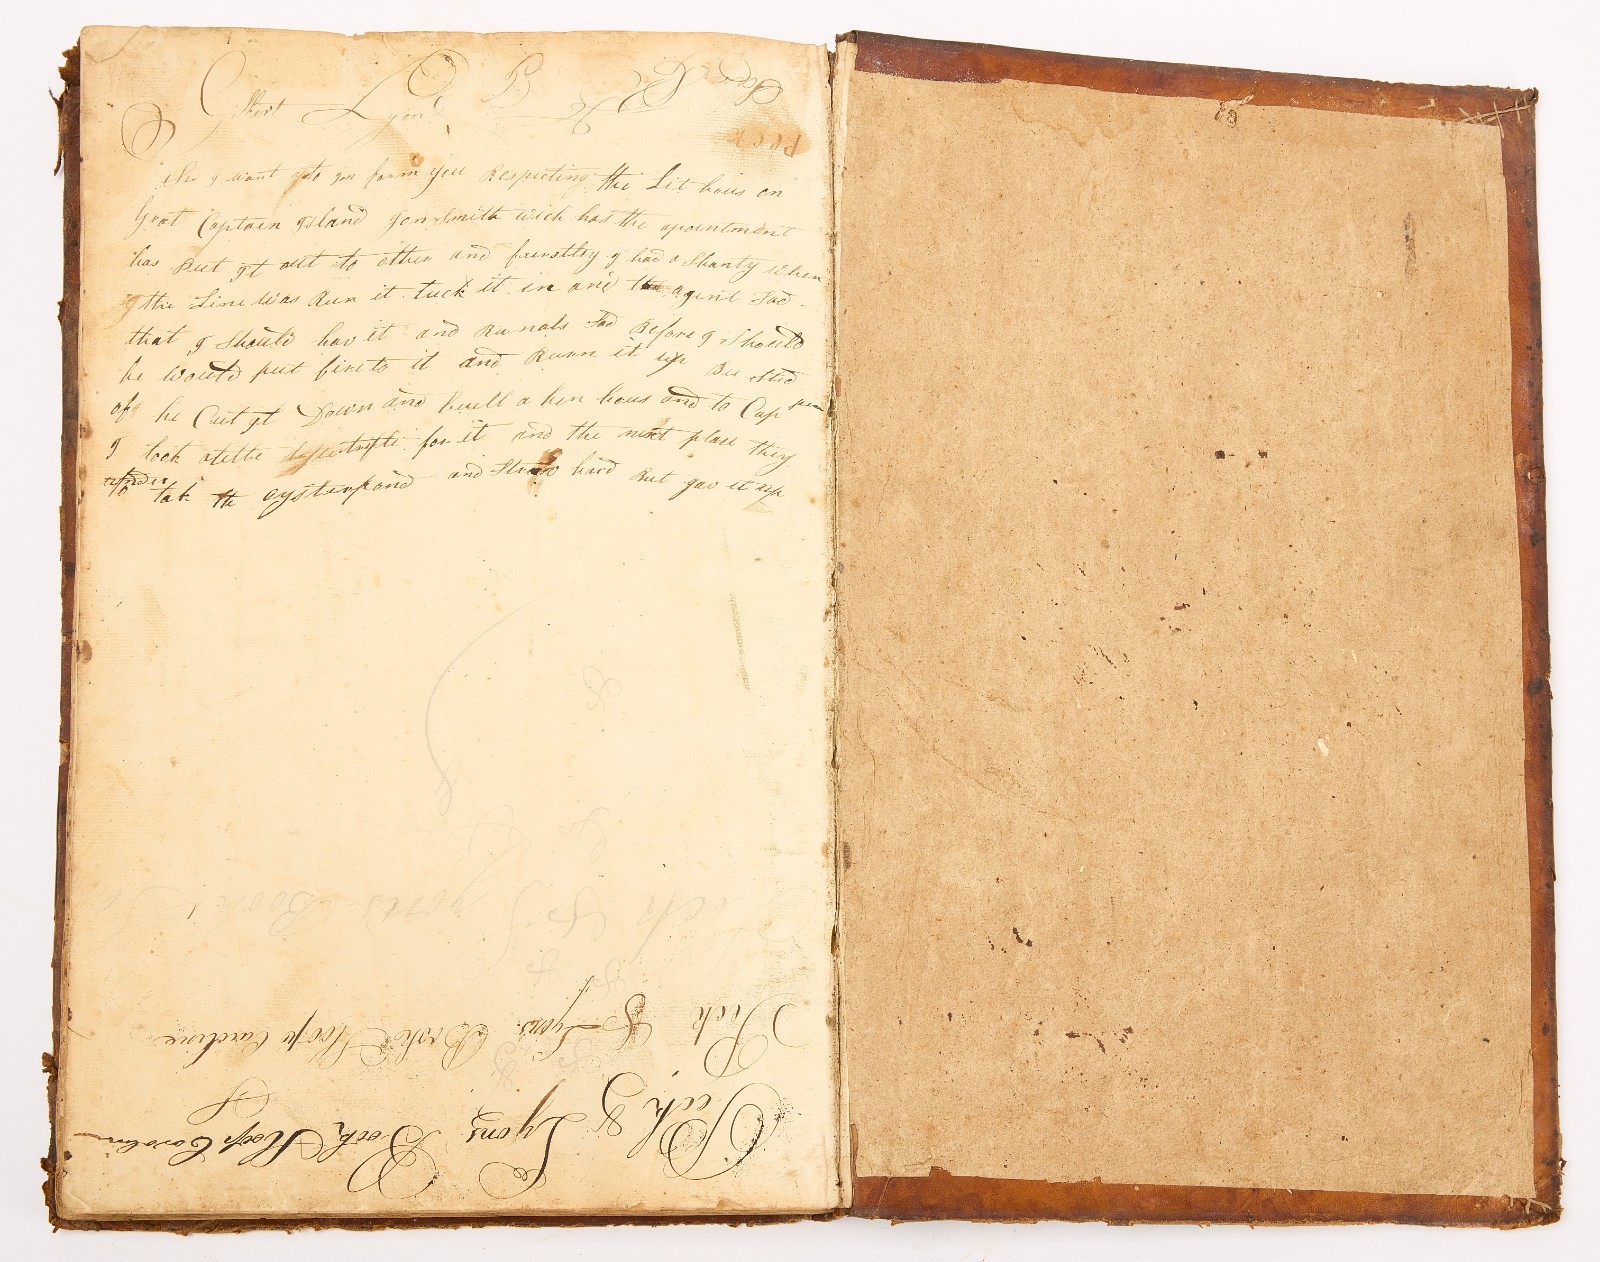 Gilbert Lyon
PECK
Sir I want to in form you Respecting the Lit hous on
Grat Captain Island Jon Smith wich has the apointment
has Put it out to other and fairstley I had a Shanty when
the Line was Run it tuck it in and the agent Sad
that I Should hav it and Runals Sad Before I Should
he Would put fire to it and Burn it up
he Cut it Down and buill a hen hous and to Cap
I took a for it and the next place they
under
to tak the oysterpond and Strov hard But gav it up
Peck & Lyons Book
Peck & Lyons Book Sloop Caroline
Peck & Lyons Book Sloop Carolin